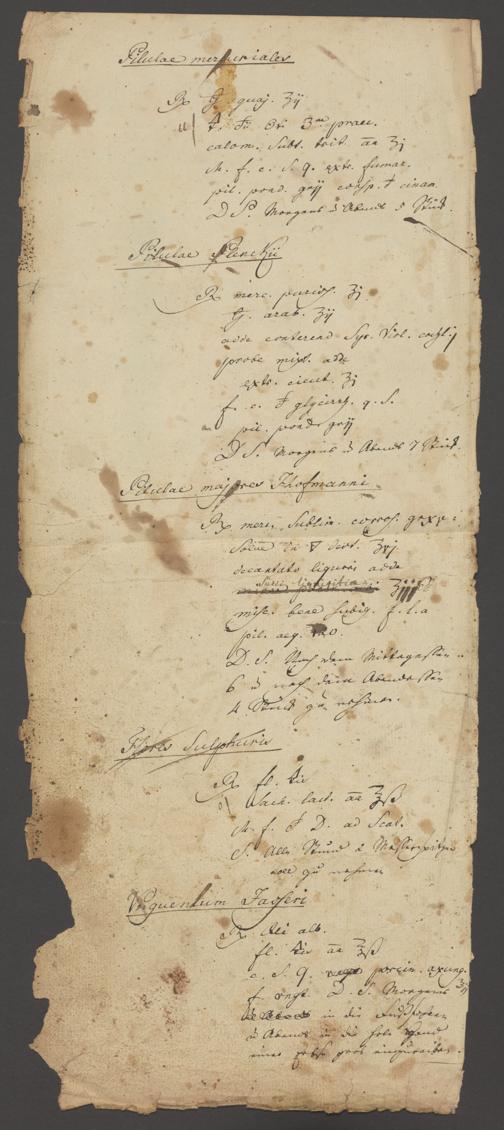 Pilulae mercuriales
Rx G. guaj. ʒij
praec.
calom. subt. trit. āā ʒj
M. f. c. S. q. extr. fumar.
pil. pond. grij consp. cinam
D. S. Morgens u Abends 5 Stück.
Pilulae Plenckii
Rx merc. purios. ʒj
G. arab. ʒij
adde conterend Syr. Viol. cochl. j
probe mixt. adde
extr. cicut. ʒj
f. c. glycirrh. q. S.
pil. ponder grij
D S. Morgens u Abends 7 Stück.
Pilulae majores Hofmanni.
Rx merc. Sublim. corros. gr xv
Solve in dest. ʒij
decantato liquori adde
misc. bene subig. f. l. a
pil. aeq. 120.
D. S. Nach dem Mittagessen
6 u nach dem Abendessen
4 Stück zu nehmen.
Flores Sulphuris
Rx fl.
Sach. lact. āā ʒß
M. f. D. ad Scat.
S. Alle Stund 2 Messerspitzen
voll zu nehmen
Unguentum Jasseri
Rx alb.
fl. āā ʒß
c. S. q. porcin. axung.
f. ungt. D. S. Morgens
in die
u Abends in die
einer gros einzureiben.